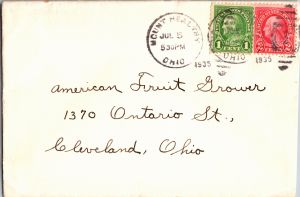 MOUNT HEALTHY
JUL 5
530PM
OHIO
1935
1 CENT 1
OHIO
1935
2
American Fruit Grower
1370 Ontario St.,
Cleveland, Ohio